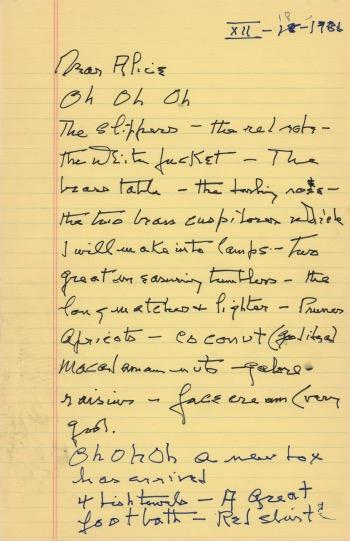 XII - 18 - 1986
Dear Alice
Oh Oh Oh
The slippers - the red robe -
the white jacket - The
brass table - the
the two brass cuspidores which
I will make into lamps - Two
great measuring tumblers - the
long matches & lighter - Prunes
Apricots - coconut (
Macadamian nuts galore -
raisins - face cream (very
good.
Oh Oh Oh a new box
has arrived
4 - A great
foot bath - Red shirt